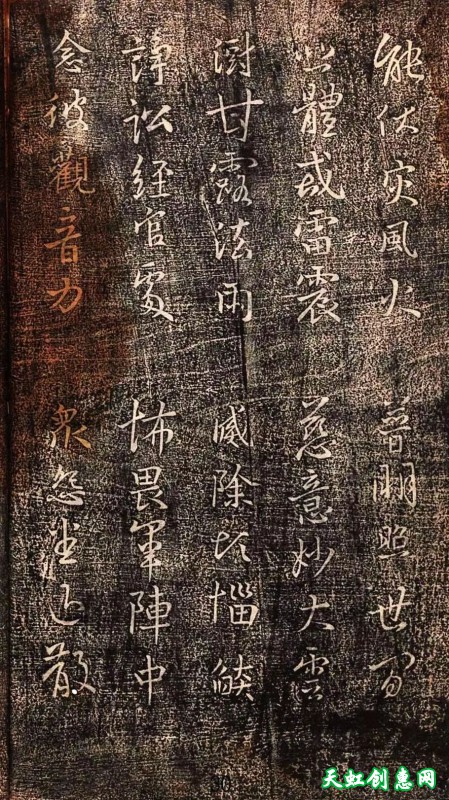 能伏灾風火 普明照世間
悲體戒雷震 慈意妙大雲
澍甘露法雨 滅除煩惱燄
諍訟經官處 怖畏軍陣中
念彼觀音力 衆怨悉退散
天虹创惠网